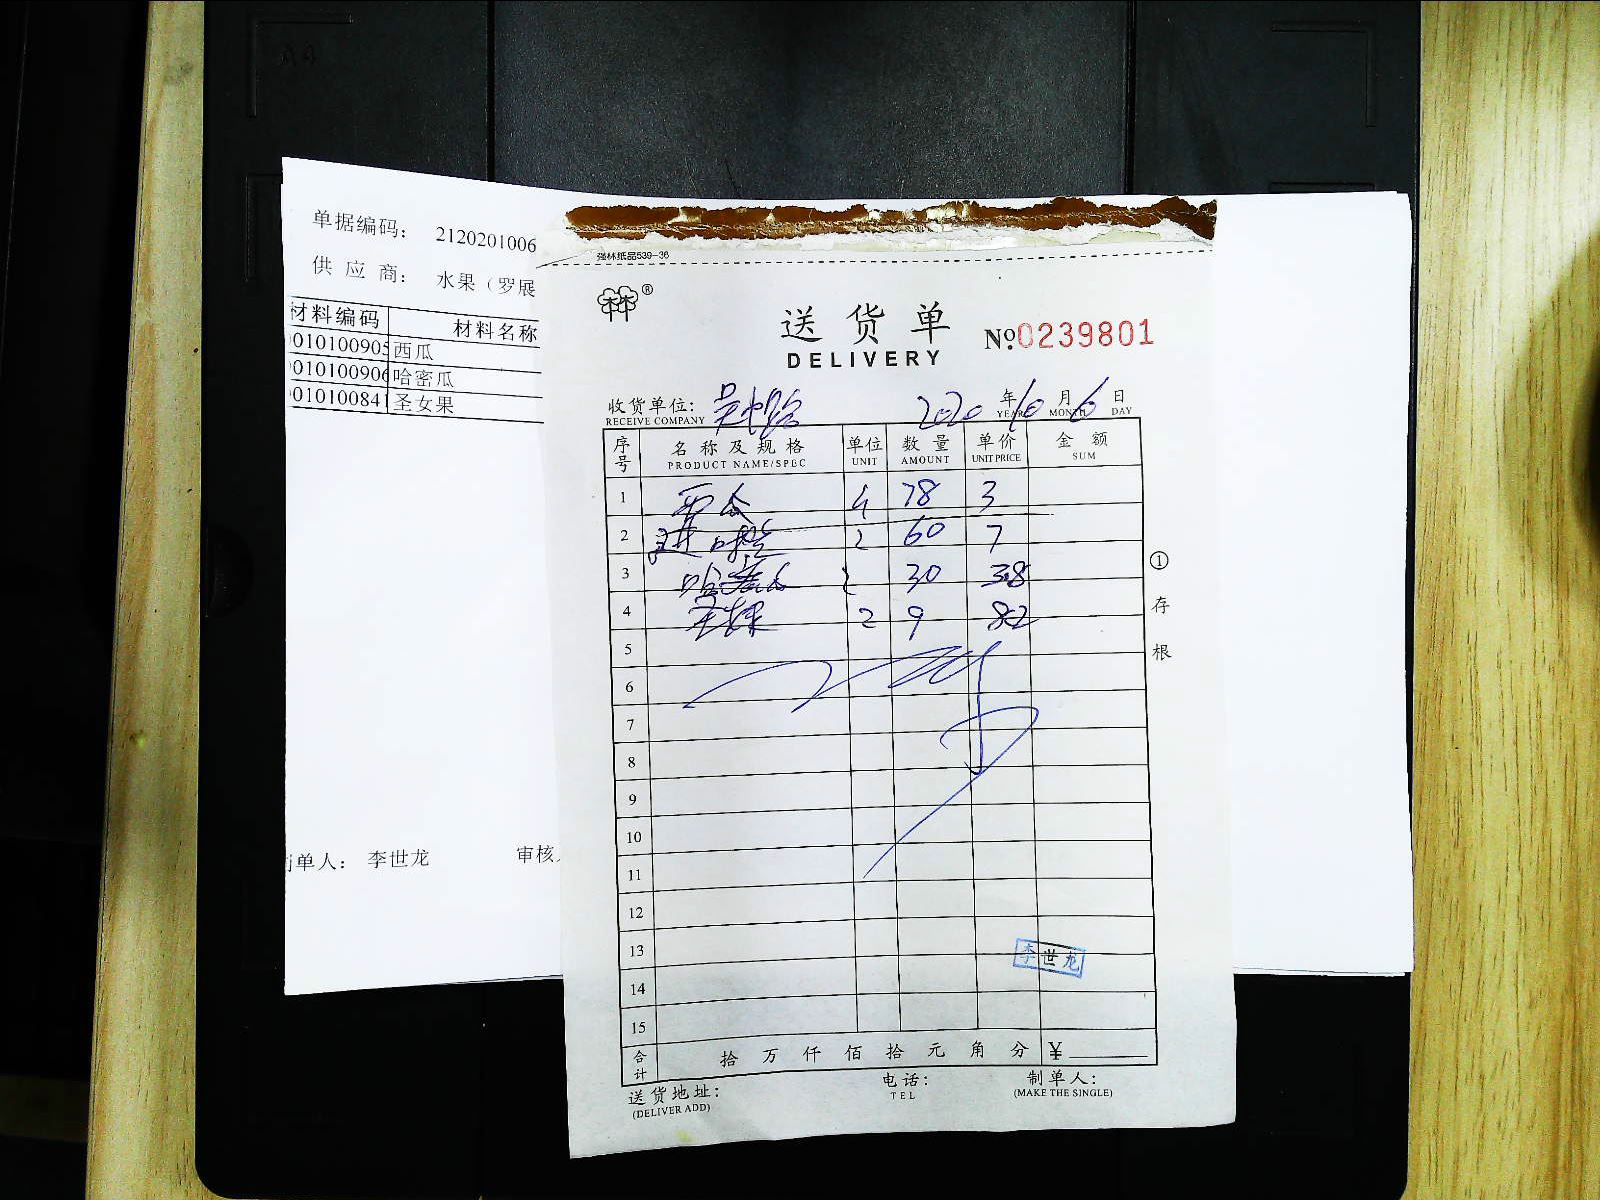 单据编码： 2120201006
供 应 商： 水果（罗展
材料编码 材料名称
010100905 西瓜
010100906 哈密瓜
010100841 圣女果
制单人： 李世龙 审核
强林纸品539-36
林 ®
送货单
DELIVERY
№ 0239801
收货单位：
RECEIVE COMPANY
2020 年 10 月 6 日
YEAR MONTH DAY
序号 名称及规格 单位 数量 单价 金额
PRODUCT NAME/SPEC UNIT AMOUNT UNIT PRICE SUM
1 西瓜 4 78 3
2 进口橙 2 60 7
3 哈密瓜 30 3.8
4 2 9 8.2
5
6
7
8
9
10
11
12
13
14
15
李世龙
合计 拾 万 仟 佰 拾 元 角 分 ¥
送货地址： 电话： 制单人：
(DELIVER ADD) TEL (MAKE THE SINGLE)
① 存根